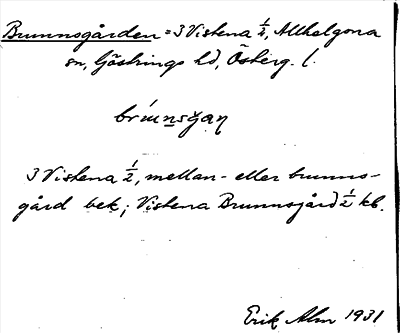 Brunnsgården = 3 Vistena ½, Allhelgona
sn, Göstrings hd, Österg. l.
3 Vistena ½, mellan- eller brunns-
gård bek; Vistena Brunnsgård ½ kb.
Erik Alm 1931